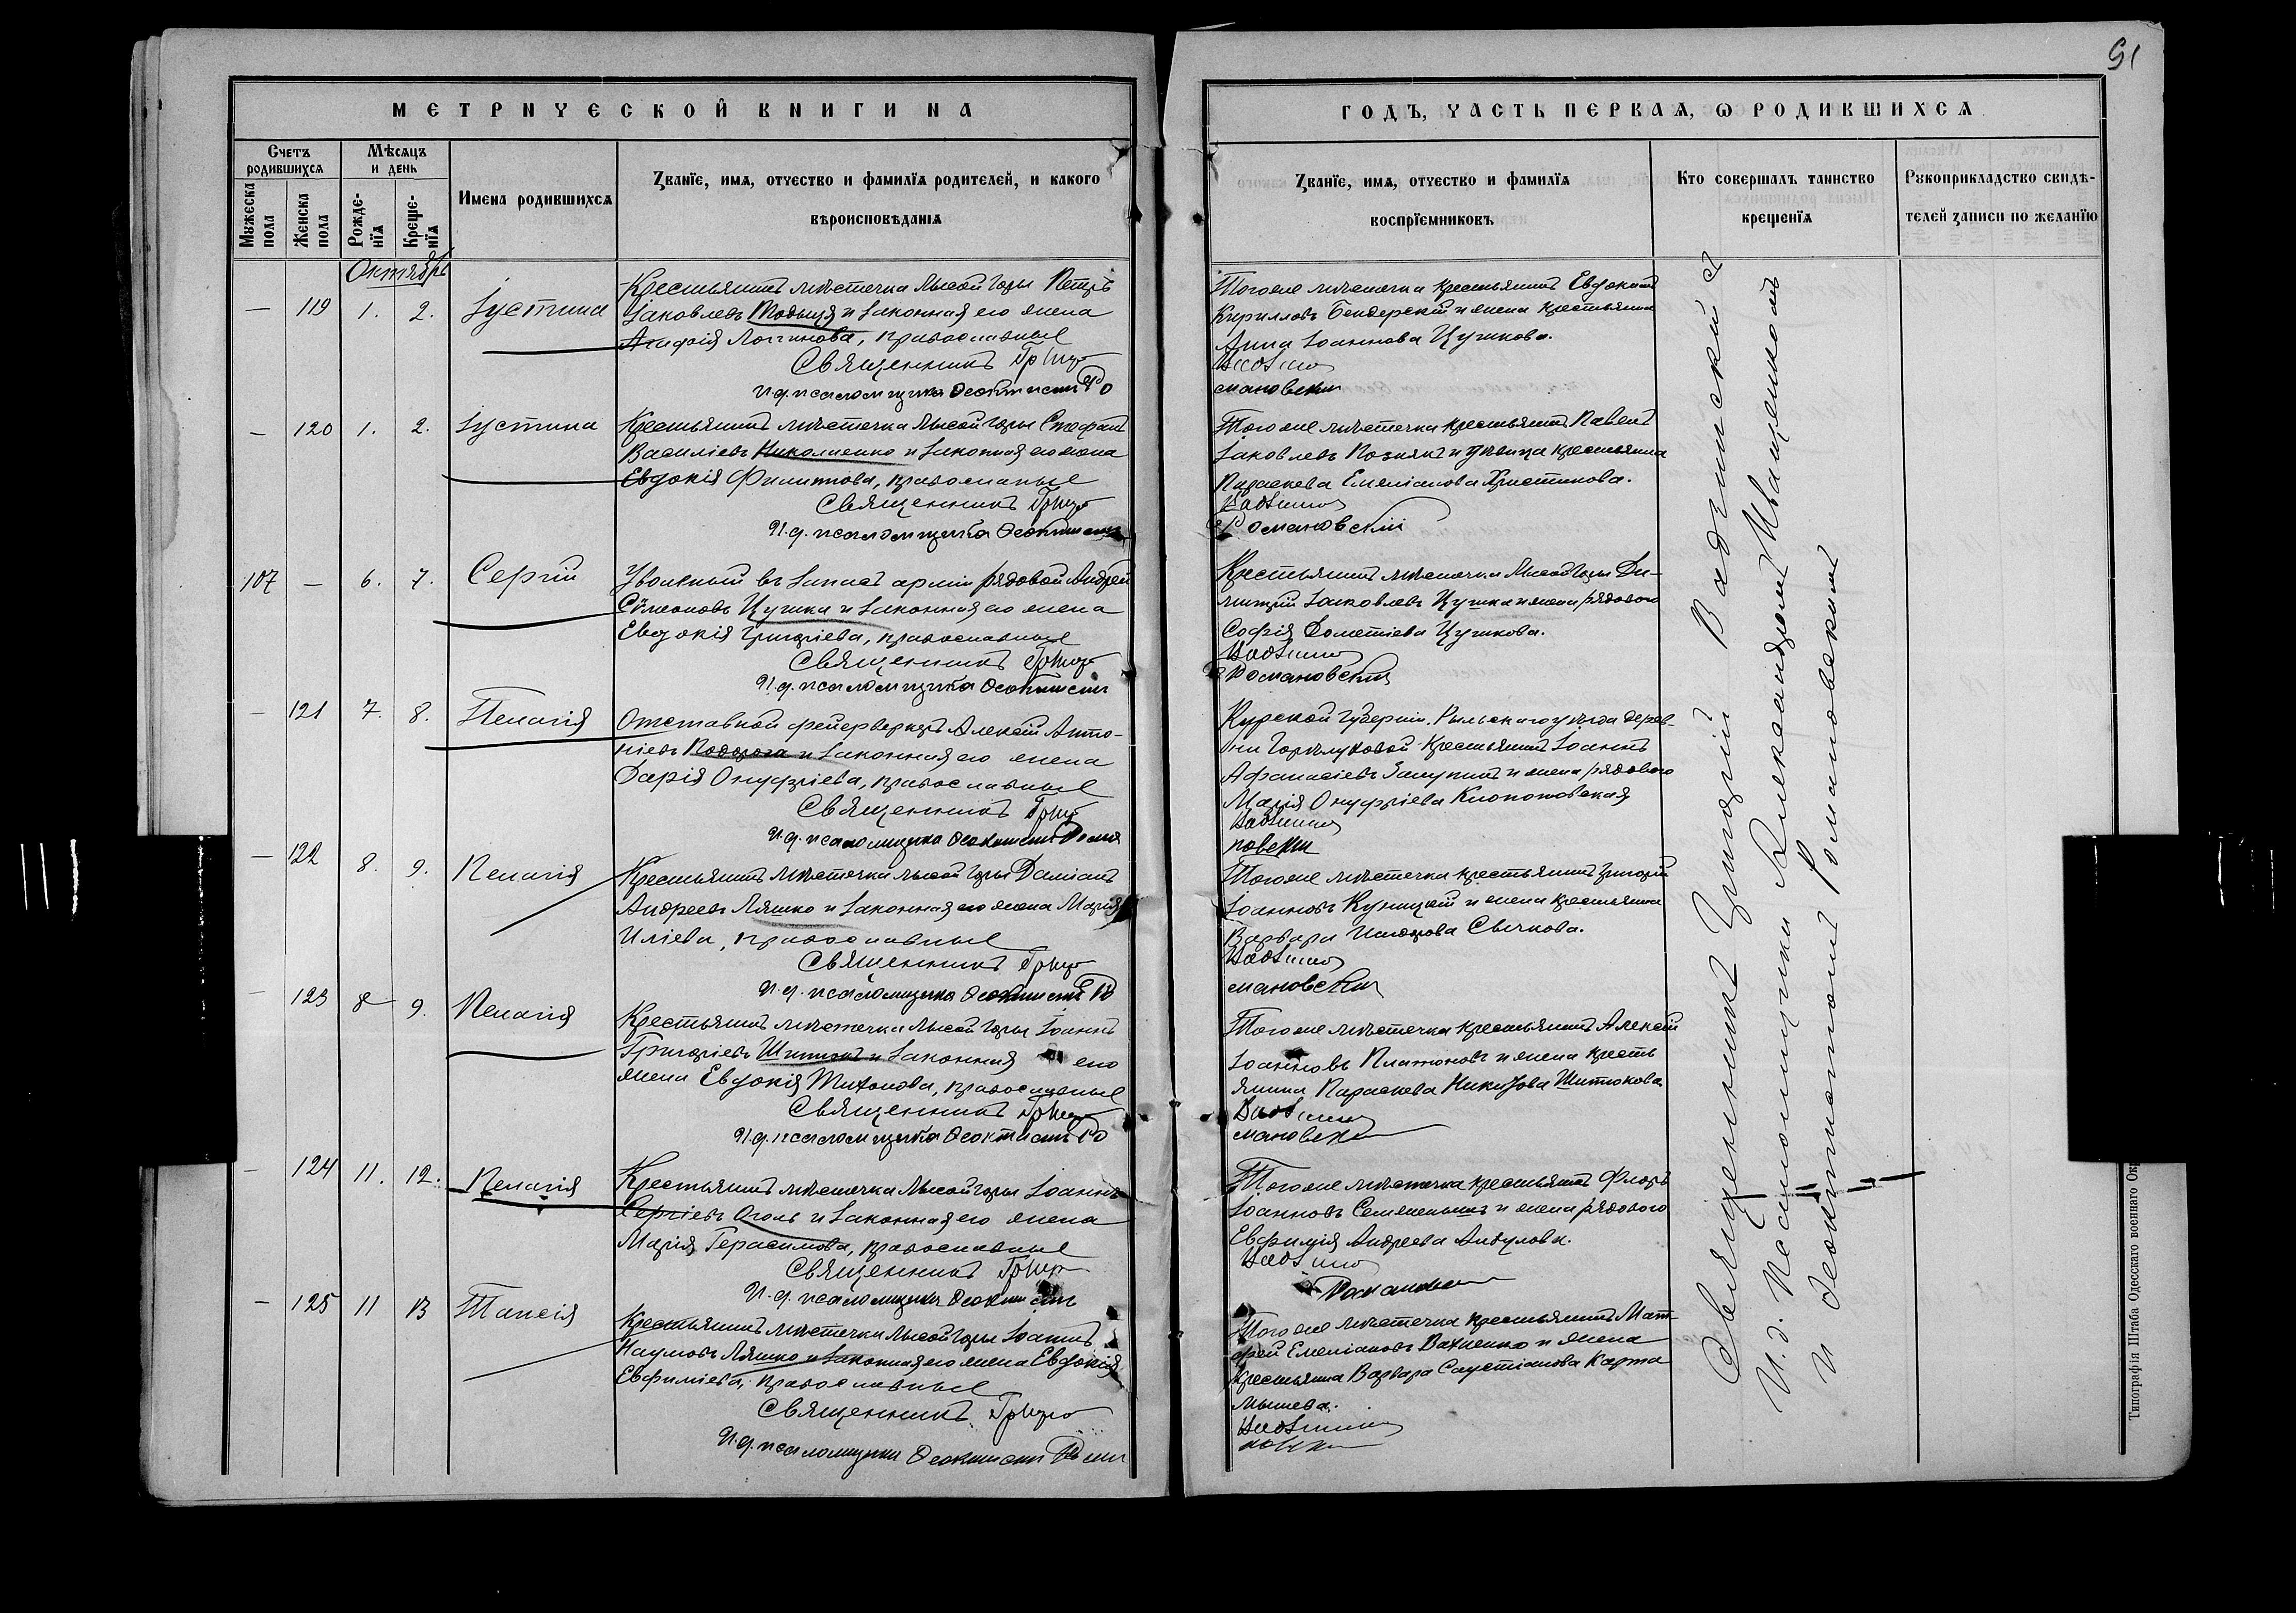 91
МЕТРИЧЕСКОЙ КНИГИ НА
ГОДЪ, ЧАСТЬ ПЕРВАЯ, Ѡ РОДИВШИХСЯ
Счетъ родившихся
Мѣсяцъ и день
Мужеска пола
Женска пола
Рожденїя
Крещенїя
Имена родившихся
Званїе, имя, отчество и фамилїя родителей, и какого
вѣроисповѣданія
Званїе, имя, отчество и фамилїя
воспрїемниковъ
Кто совершалъ таинство
крещенїя
Рукоприкладство свидѣ-
телей записи по желанїю
Октябрь
— 119 1. 2. Іустина
Крестьянинъ мѣстечка Лысой Горы Петръ
Іаковлевъ и законная его жена
Логгинова, православные
Священникъ
и.д. псаломщика Ѳеоктистъ Ро
Тогоже мѣстечка крестьянинъ Евдокимъ
Кирилловъ Бендерскій и жена крестьянина
Анна Іоаннова Цушкова.
мановскій
— 120 1. 2. Іустина
Крестьянинъ мѣстечка Лысой Горы Стефанъ
Василіевъ Николаенко и законная его жена
Евдокія Филиппова, православные
Священникъ
И.д. псаломщика Ѳеоктистъ
Тогоже мѣстечка крестьянинъ Павелъ
Іаковлевъ Познякъ и дѣвица крестьянка
Параскева Емеліанова Христинова.
Романовскій
107 — 6. 7. Сергій
Уволенный въ запасъ арміи рядовой Андрей
Симеоновъ Цушка и законная его жена
Евдокія Григоріева, православные
Священникъ
И.д. псаломщика Ѳеоктистъ
Крестьянинъ мѣстечка Лысой Горы Ди-
митрій Іаковлевъ Цушка и жена рядового
Софія Дометіева Цушкова.
Романовскій
— 121 7. 8. Пелагія
Отставной фейерверкеръ Алексій Анто-
ніевъ и законная его жена
Дарія Онуфріева, православные
Священникъ
И.д. псаломщика Ѳеоктистъ Рома
Курской губерніи, Рыльскаго уѣзда дерев-
ни крестьянинъ Іоаннъ
Афанасіевъ и жена рядового
Марія Онуфріева
новскій
— 122 8. 9. Пелагія
Крестьянинъ мѣстечка Лысой Горы Даміанъ
Андреевъ Ляшко и законная его жена Марія
Иліева, православные
Священникъ
И.д. псаломщика Ѳеоктистъ Ро
Тогоже мѣстечка крестьянинъ Григорій
Іоанновъ Куницкій и жена крестьянина
Варвара Исидорова Свечкова.
мановскій
— 123 8 9. Пелагія
Крестьянинъ мѣстечка Лысой Горы Іоаннъ
Григоріевъ и законная его
жена Евдокія Тихонова, православные
Священникъ
И.д. псаломщика Ѳеоктистъ Ро
Тогоже мѣстечка крестьянинъ Алексій
Іоанновъ Платоновъ и жена кресть
янина Параскева Никитова Шитюкова
мановскій
— 124 11. 12. Пелагія
Крестьянинъ мѣстечка Лысой Горы Іоаннъ
Сергіевъ Оголь и законная его жена
Марія Герасимова, православные
Священникъ
И.д. псаломщика Ѳеоктистъ
Тогоже мѣстечка крестьянинъ Флоръ
Іоанновъ и жена рядового
Евфимія Андреева
— 125 11 13 Таисія
Крестьянинъ мѣстечка Лысой Горы Іоаннъ
Наумовъ Ляшко и законная его жена Евдокія
Евфиміева, православные
Священникъ
И.д. псаломщика Ѳеоктистъ
Тогоже мѣстечка крестьянинъ Мат-
фей Емеліановъ Вахненко и жена
крестьянина Варвара Карта
мышева.
Священникъ Григорій
И.д. Псаломщика Александромъ Иващенкомъ
и Ѳеоктистомъ Романовскимъ
Типографія Штаба Одесскаго военнаго Окр